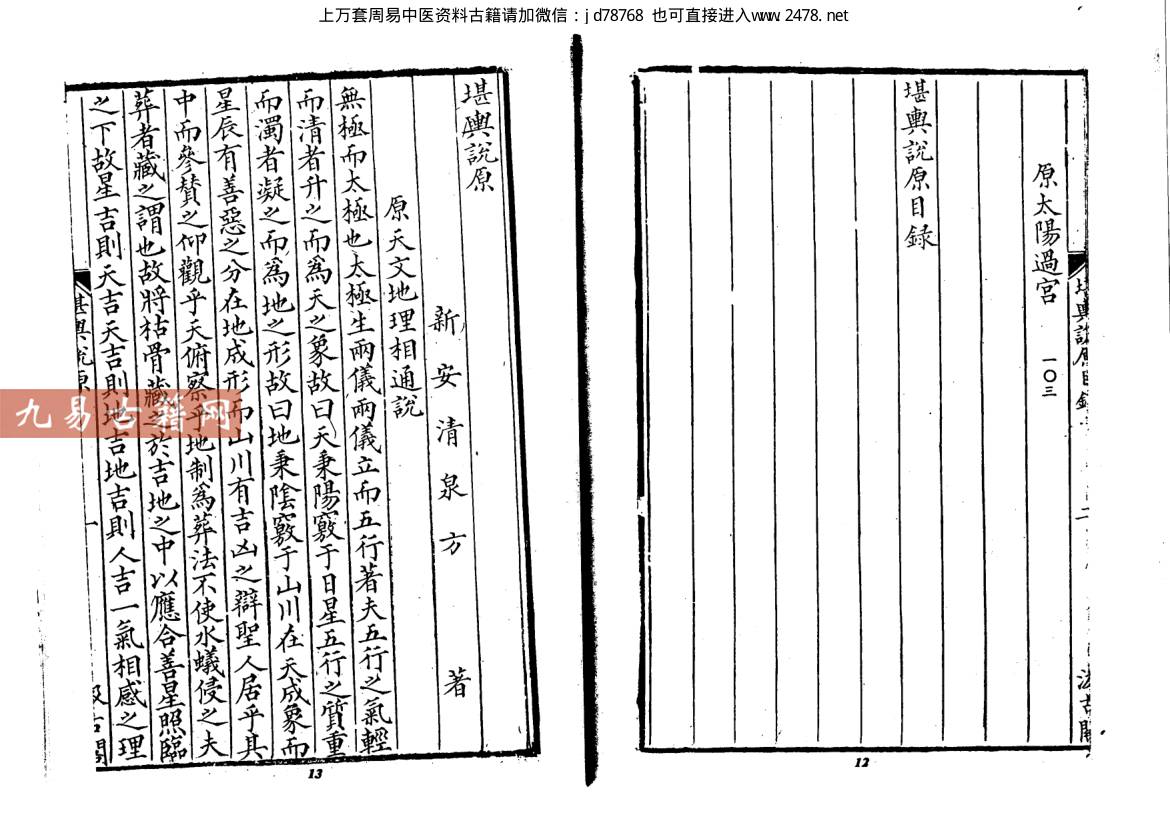 上万套周易中医资料古籍请加微信：jd78768 也可直接进入www.2478.net
原太陽過宮 一〇三
堪輿說原目録
堪輿說原目録
二
汲古閣
12
堪輿說原
新安清泉方 著
原天文地理相通說
無極而太極也太極生兩儀兩儀立而五行著夫五行之氣輕
而清者升之而為天之象故曰天秉陽竅于日星五行之質重
而濁者凝之而為地之形故曰地秉陰竅于山川在天成象而
星辰有善惡之分在地成形而山川有吉凶之辯聖人居乎其
中而參贊之仰觀乎天俯察乎地制為葬法不使水蟻侵之夫
葬者藏之謂也故將枯骨藏之於吉地之中以應合善星照臨
之下故星吉則天吉天吉則地吉地吉則人吉一氣相感之理
堪輿說原
一
汲古閣
13
九易古籍网